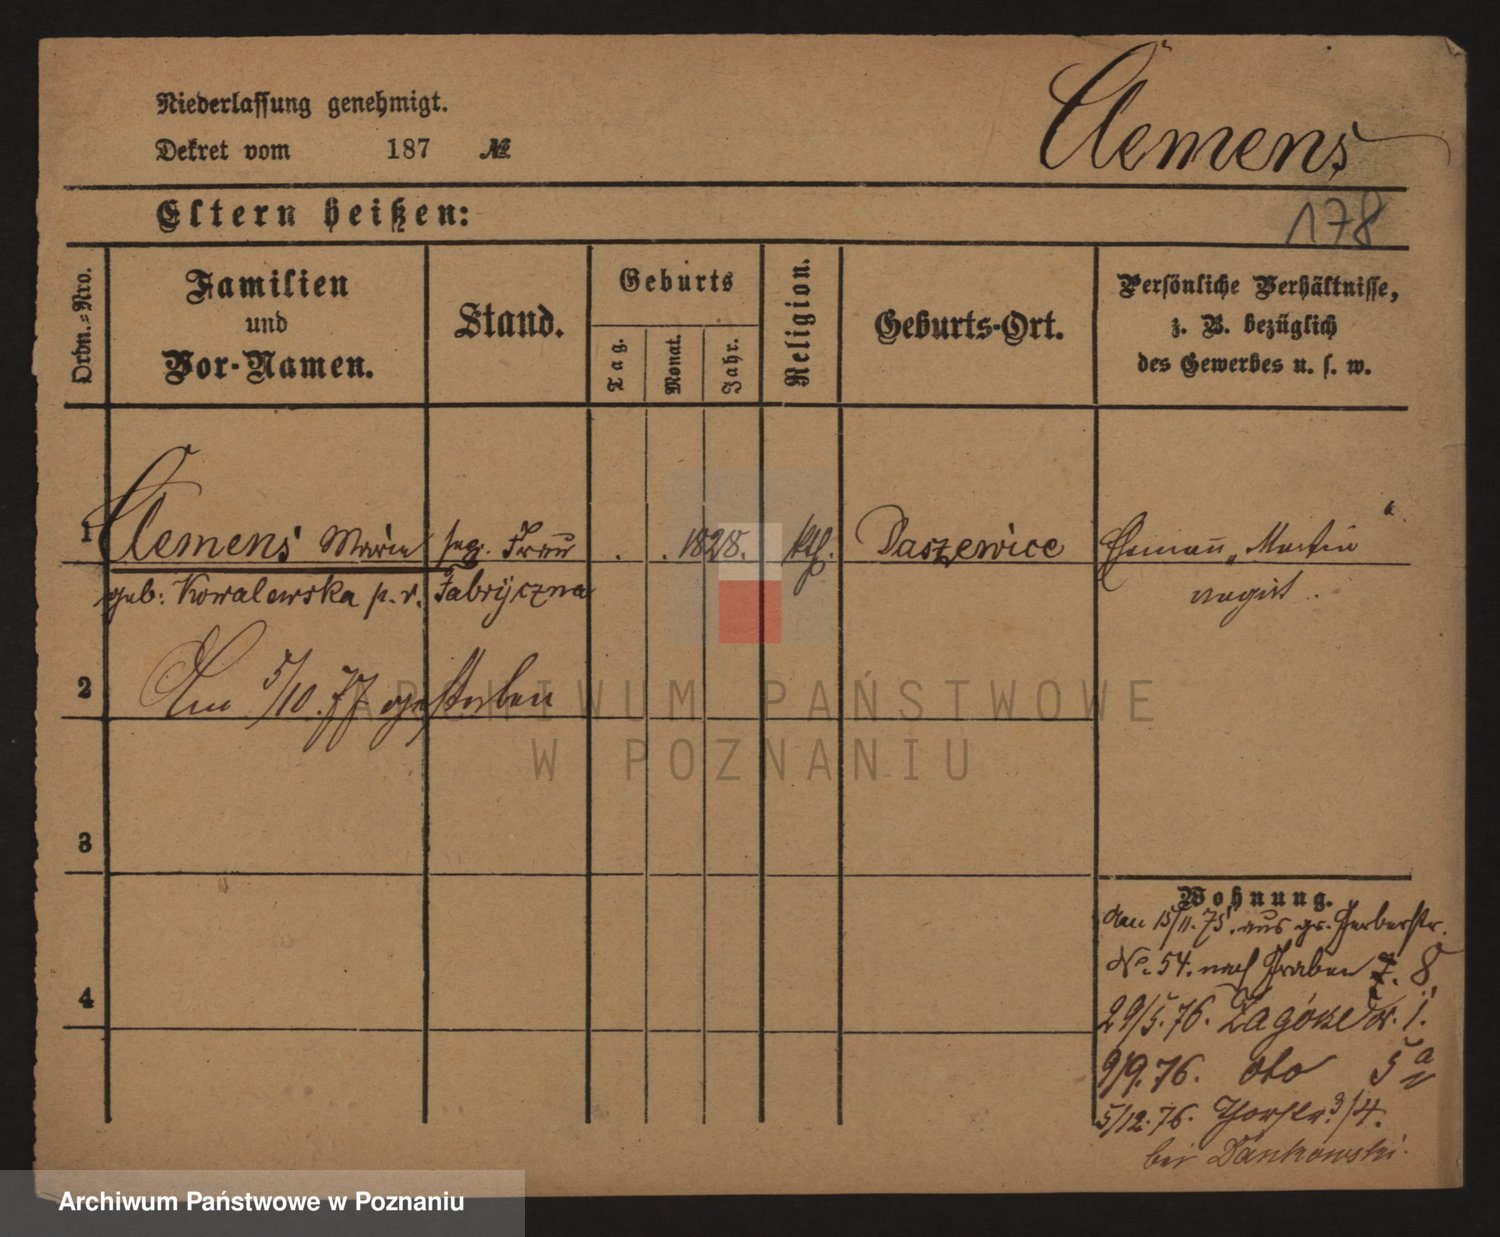 Niederlassung genehmigt.
Dekret vom 187 №
Clemens
Eltern heißen:
178
Ordn.-Nro.
Familien
und
Vor-Namen.
Stand.
Geburts
Tag.
Monat.
Jahr.
Religion.
Geburts-Ort.
Persönliche Verhältnisse,
z. B. bezüglich
des Gewerbes u. s. w.
1 Clemens Marie Frau 1828. kth. Daszewice Ehemann „Martin“
geb: Kowalewska p. v. Fabryczna
2 Am 5/10. 77 gestorben
3
4
Wohnung.
den 15/11. 75. aus gr. Gerberstr.
No. 54. nach Graben 8.
29/5. 76. Zagórze 1.
9/9. 76. dto 5 a
5/12. 76. Thorstr. 3/4.
bei Dankowski.
ARCHIWUM PAŃSTWOWE
W POZNANIU
Archiwum Państwowe w Poznaniu